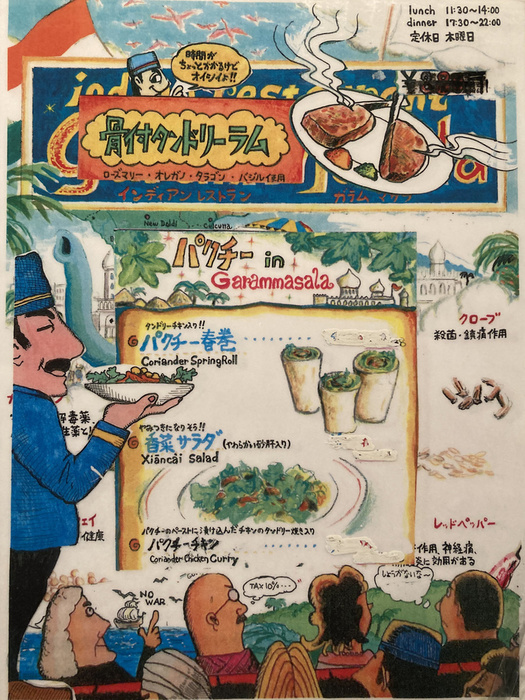 lunch 11:30~14:00
dinner 17:30~22:00
定休日 木曜日
時間が
ちょっとかかるけど
オイシイよ!!
restaurant
骨付タンドリーラム
ローズマリー・オレガノ・タラゴン・バジル使用
インディアンレストラン
ガラムマサラ
New Deldi
パクチー in
Garammasala
タンドリーチキン入り!!
パクチー春巻
Coriander SpringRoll
クローブ
殺菌・鎮痛作用
やみつきになりそう!!
香菜サラダ(やわらかい砂肝入り)
Xiāncài Salad
パクチーのペーストに漬け込んだチキンのタンドリー焼き入り
パクチーチキン
Coriander Chicken Curry
レッドペッパー
作用、神経痛、
炎に効用がある
NO
WAR
TAX10%...
しょうがないな~